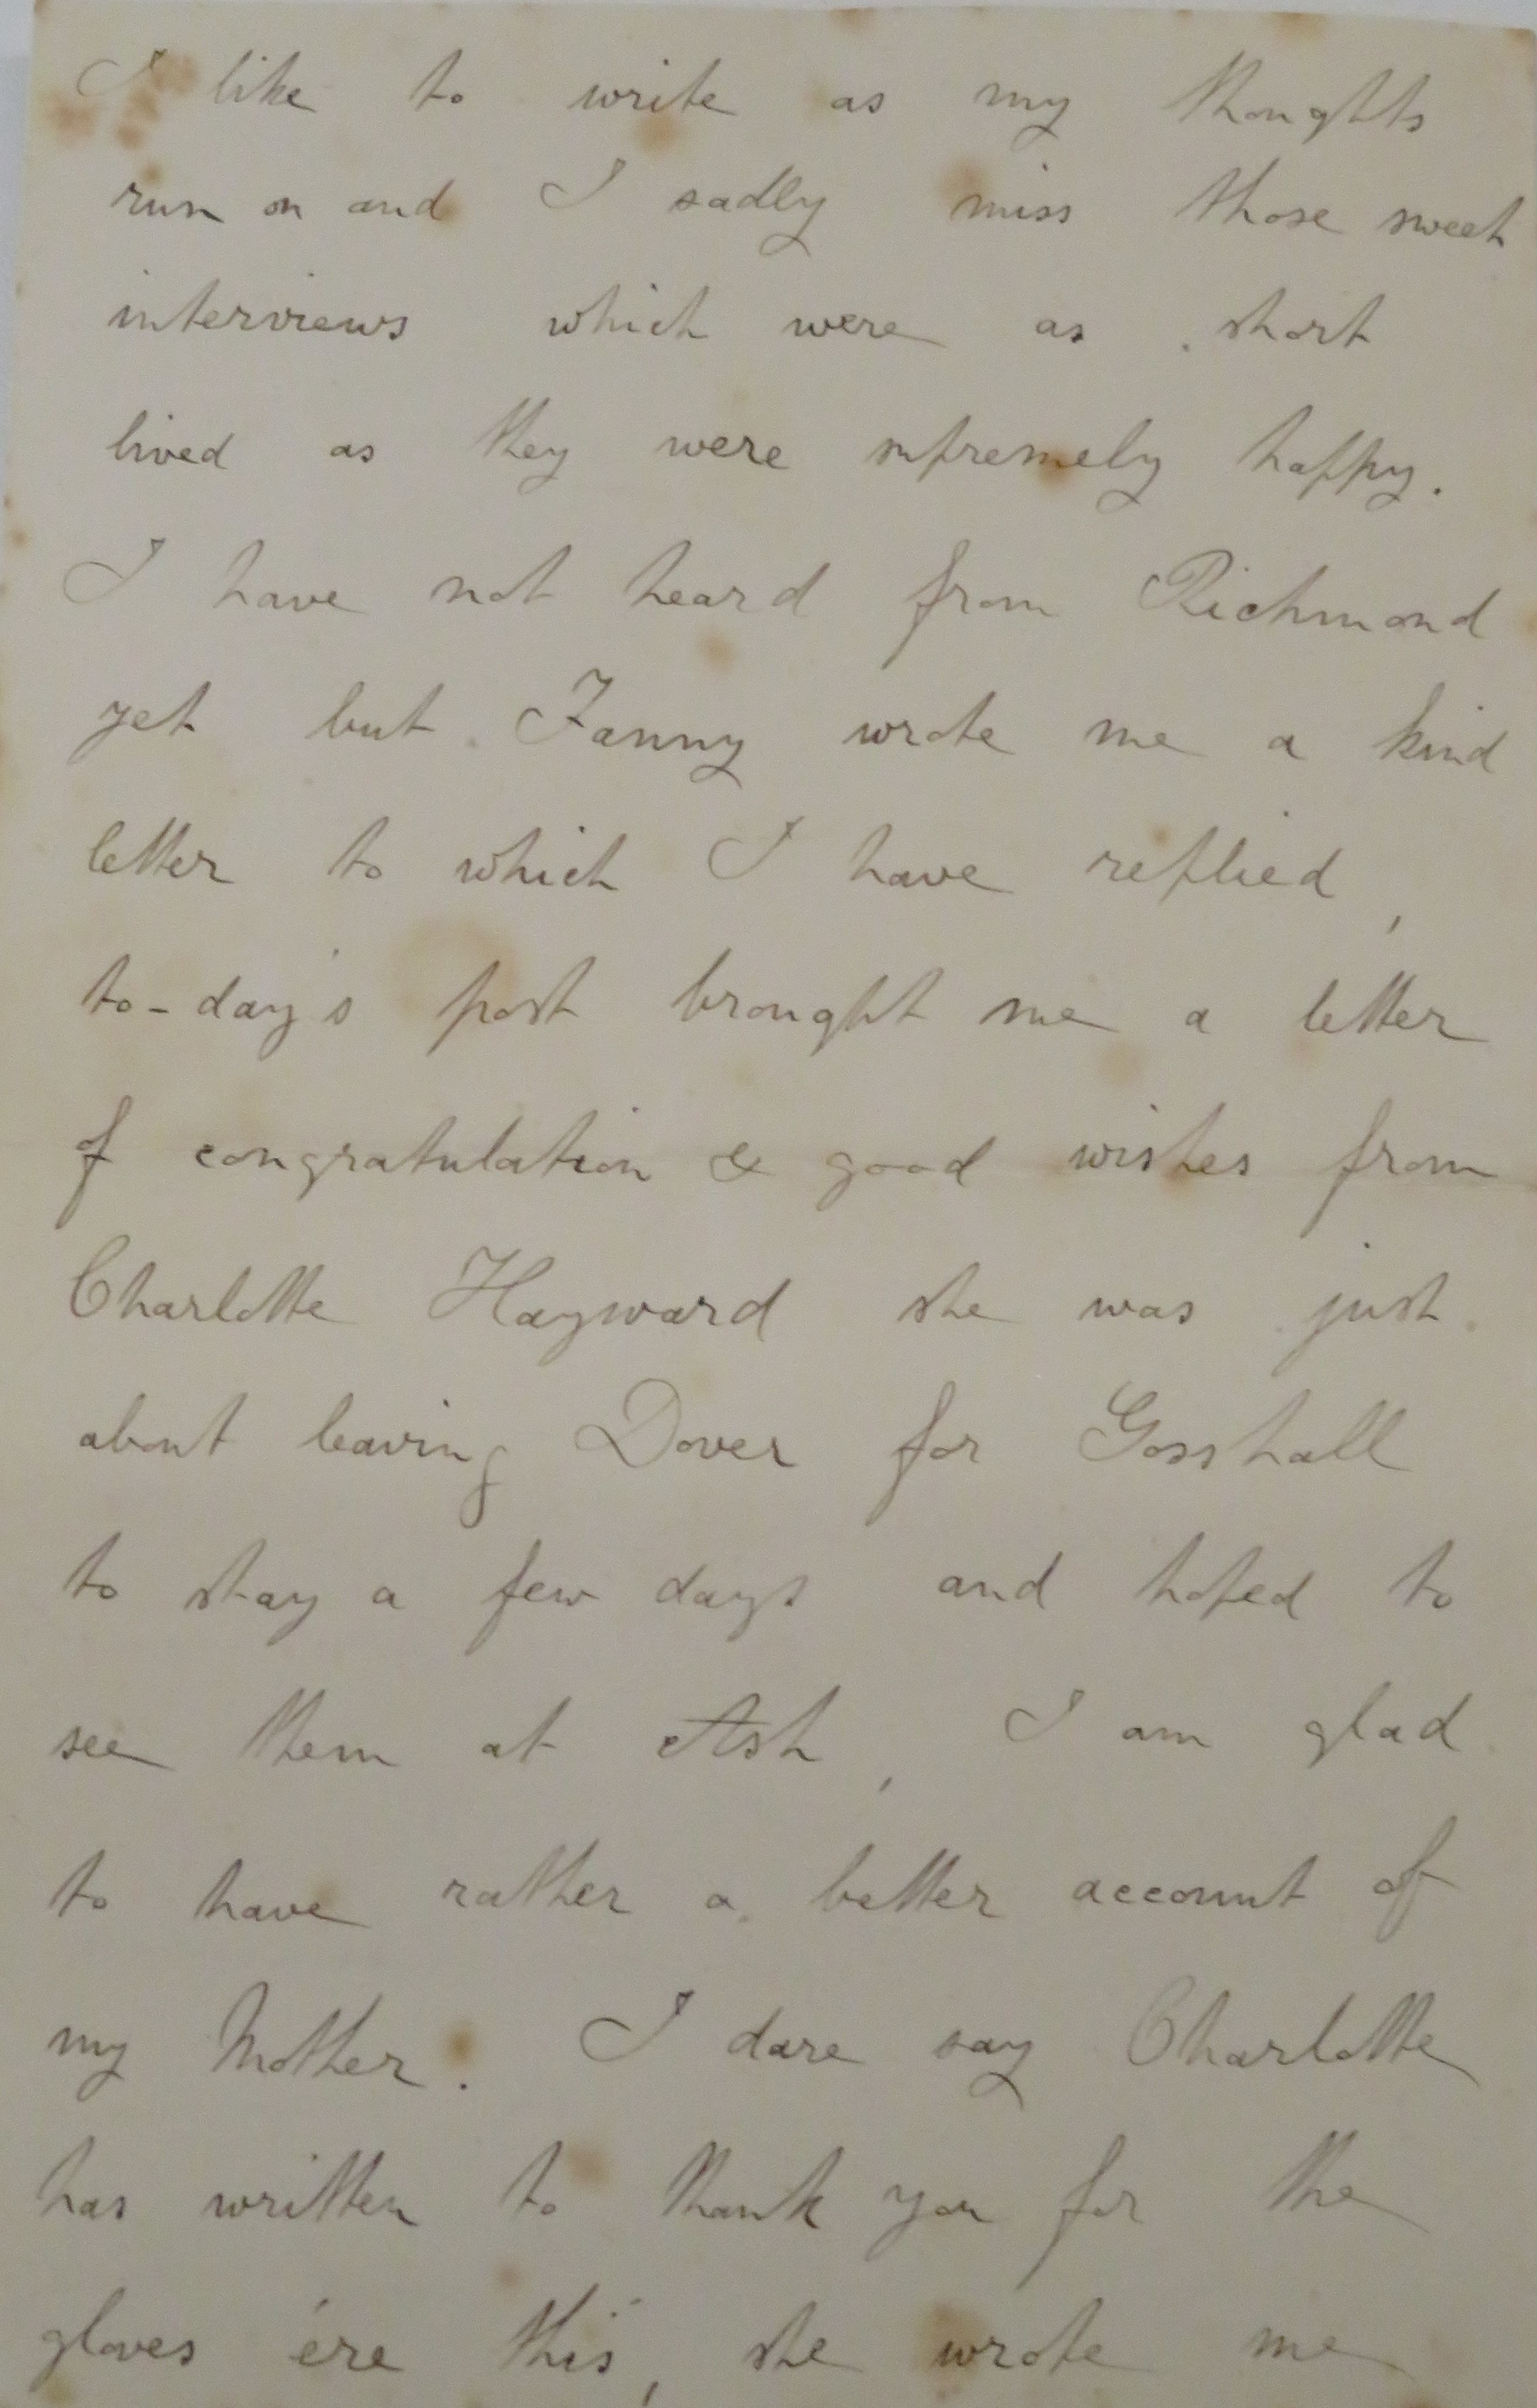 I like to write as my thoughts
run on and I sadly miss those sweet
interviews which were as short
lived as they were supremely happy.
I have not heard from Richmond
yet but Fanny wrote me a kind
letter to which I have replied,
to-day's post brought me a letter
of congratulation & good wishes from
Charlotte Hayward she was just
about leaving Dover for Gosshall
to stay a few days and hoped to
see them at Ash, I am glad
to have rather a better account of
my Mother. I dare say Charlotte
has written to thank you for the
gloves ére this, she wrote me